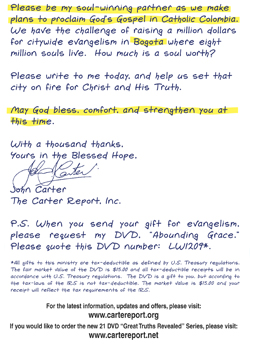 Please be my soul-winning partner as we make
plans to proclaim God's Gospel in Catholic Colombia.
We have the challenge of raising a million dollars
for citywide evangelism in Bogota where eight
million souls live. How much is a soul worth?
Please write to me today, and help us set that
city on fire for Christ and His Truth.
May God bless, comfort, and strengthen you at
this time.
With a thousand thanks,
Yours in the Blessed Hope,
John Carter
John Carter
The Carter Report, Inc.
P.S. When you send your gift for evangelism,
please request my DVD, "Abounding Grace."
Please quote this DVD number: LW1209*.
*All gifts to this ministry are tax-deductible as defined by U.S. Treasury regulations.
The fair market value of the DVD is $15.00 and all tax-deductible receipts will be in
accordance with U.S. Treasury regulations. The DVD is a gift to you, but according to
the tax-laws of the IRS is not tax-deductible. The market value is $15.00 and your
receipt will reflect the tax requirements of the IRS.
For the latest information, updates and offers, please visit:
www.cartereport.org
If you would like to order the new 21 DVD "Great Truths Revealed" Series, please visit:
www.cartereport.net